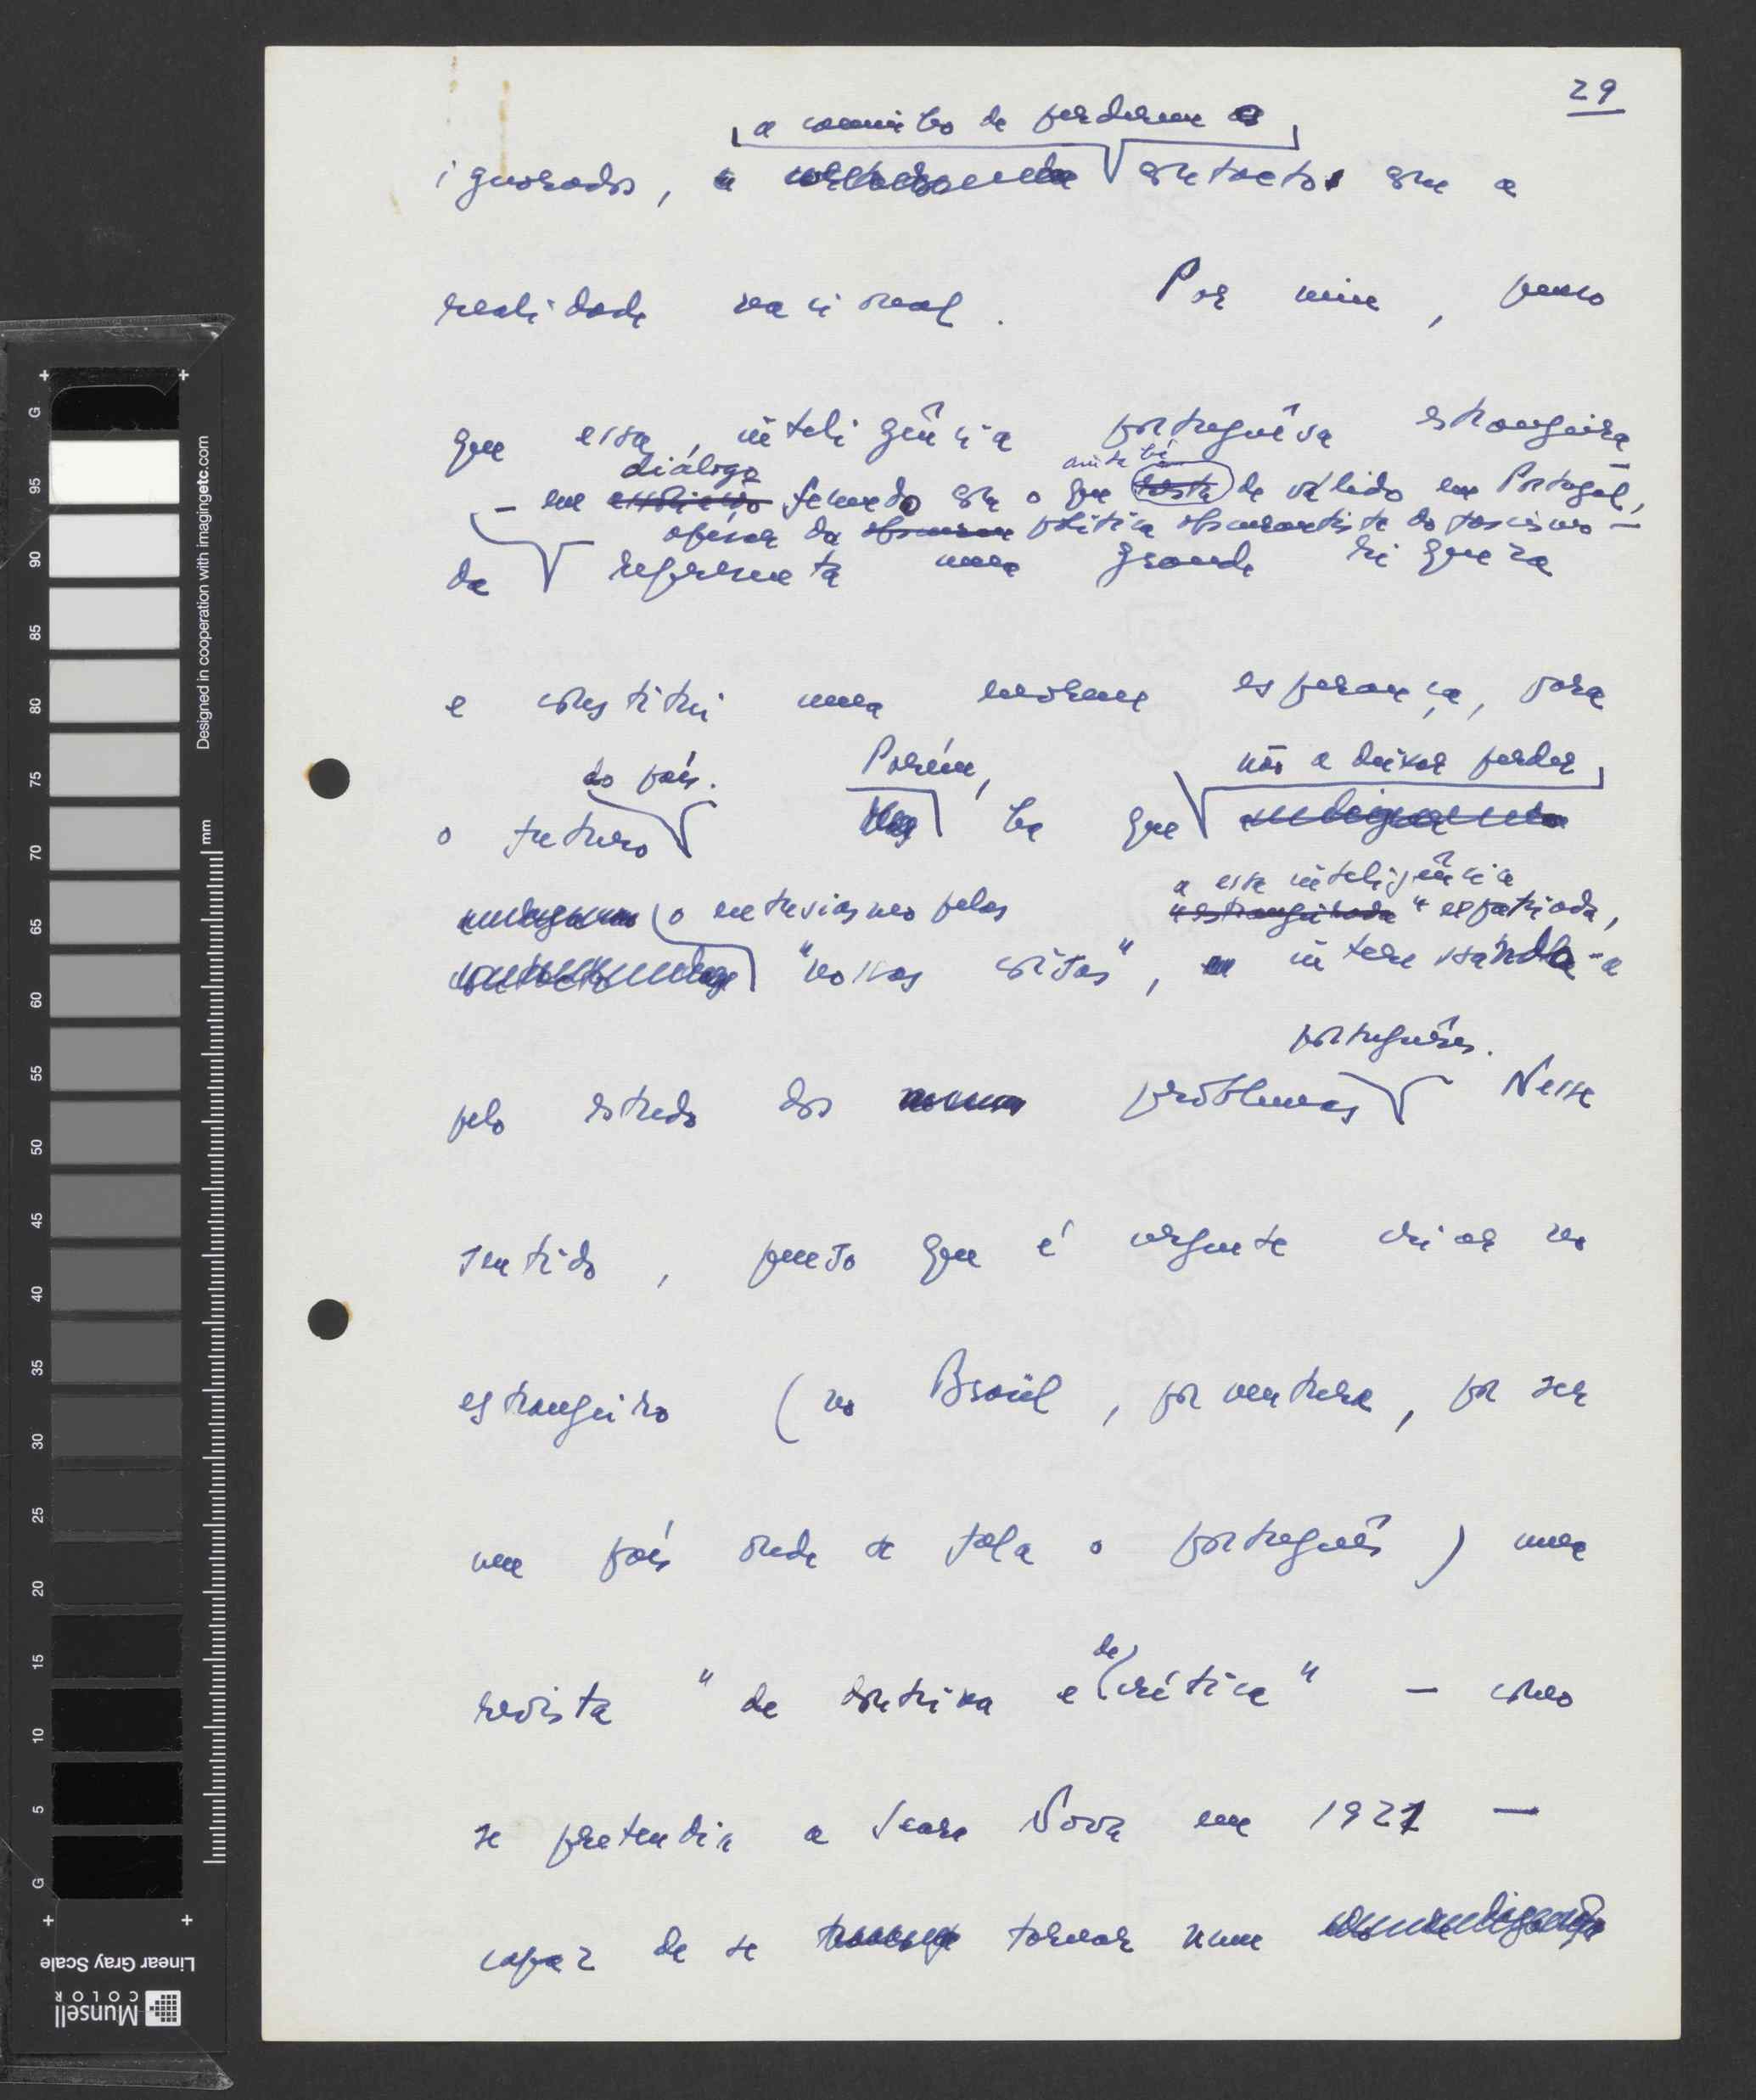 29
a caminho de perderem o
ignorados, contacto com a
realidade nacional. Por mim, penso
que essa inteligência portuguesa estrangeira
diálogo ainda há
– em fecundo com o que resta de válido em Portugal,
apesar da política obscurantista do fascismo –
da representa uma grande riqueza
e constitui uma enorme esperança, para
do país. Porém, não a deixar perder
o futuro há que
a essa inteligência
o entusiasmo pelas "estrangeirada" expatriada,
"nossas coisas", interessando-a
portugueses.
pelo estudo dos problemas Nesse
sentido, penso que é urgente criar no
estrangeiro (no Brasil, porventura, por ser
um país onde se fala o português) uma
de
revista "de doutrina e crítica" – como
se pretendia a Seara Nova em 1921 –
capaz de se tornar num
Designed in cooperation with imagingetc.com
mm
G 95 90 85 80 75 70 65 60 55 50 45 40 35 30 25 20 15 10 5 G
Linear Gray Scale
Munsell
COLOR